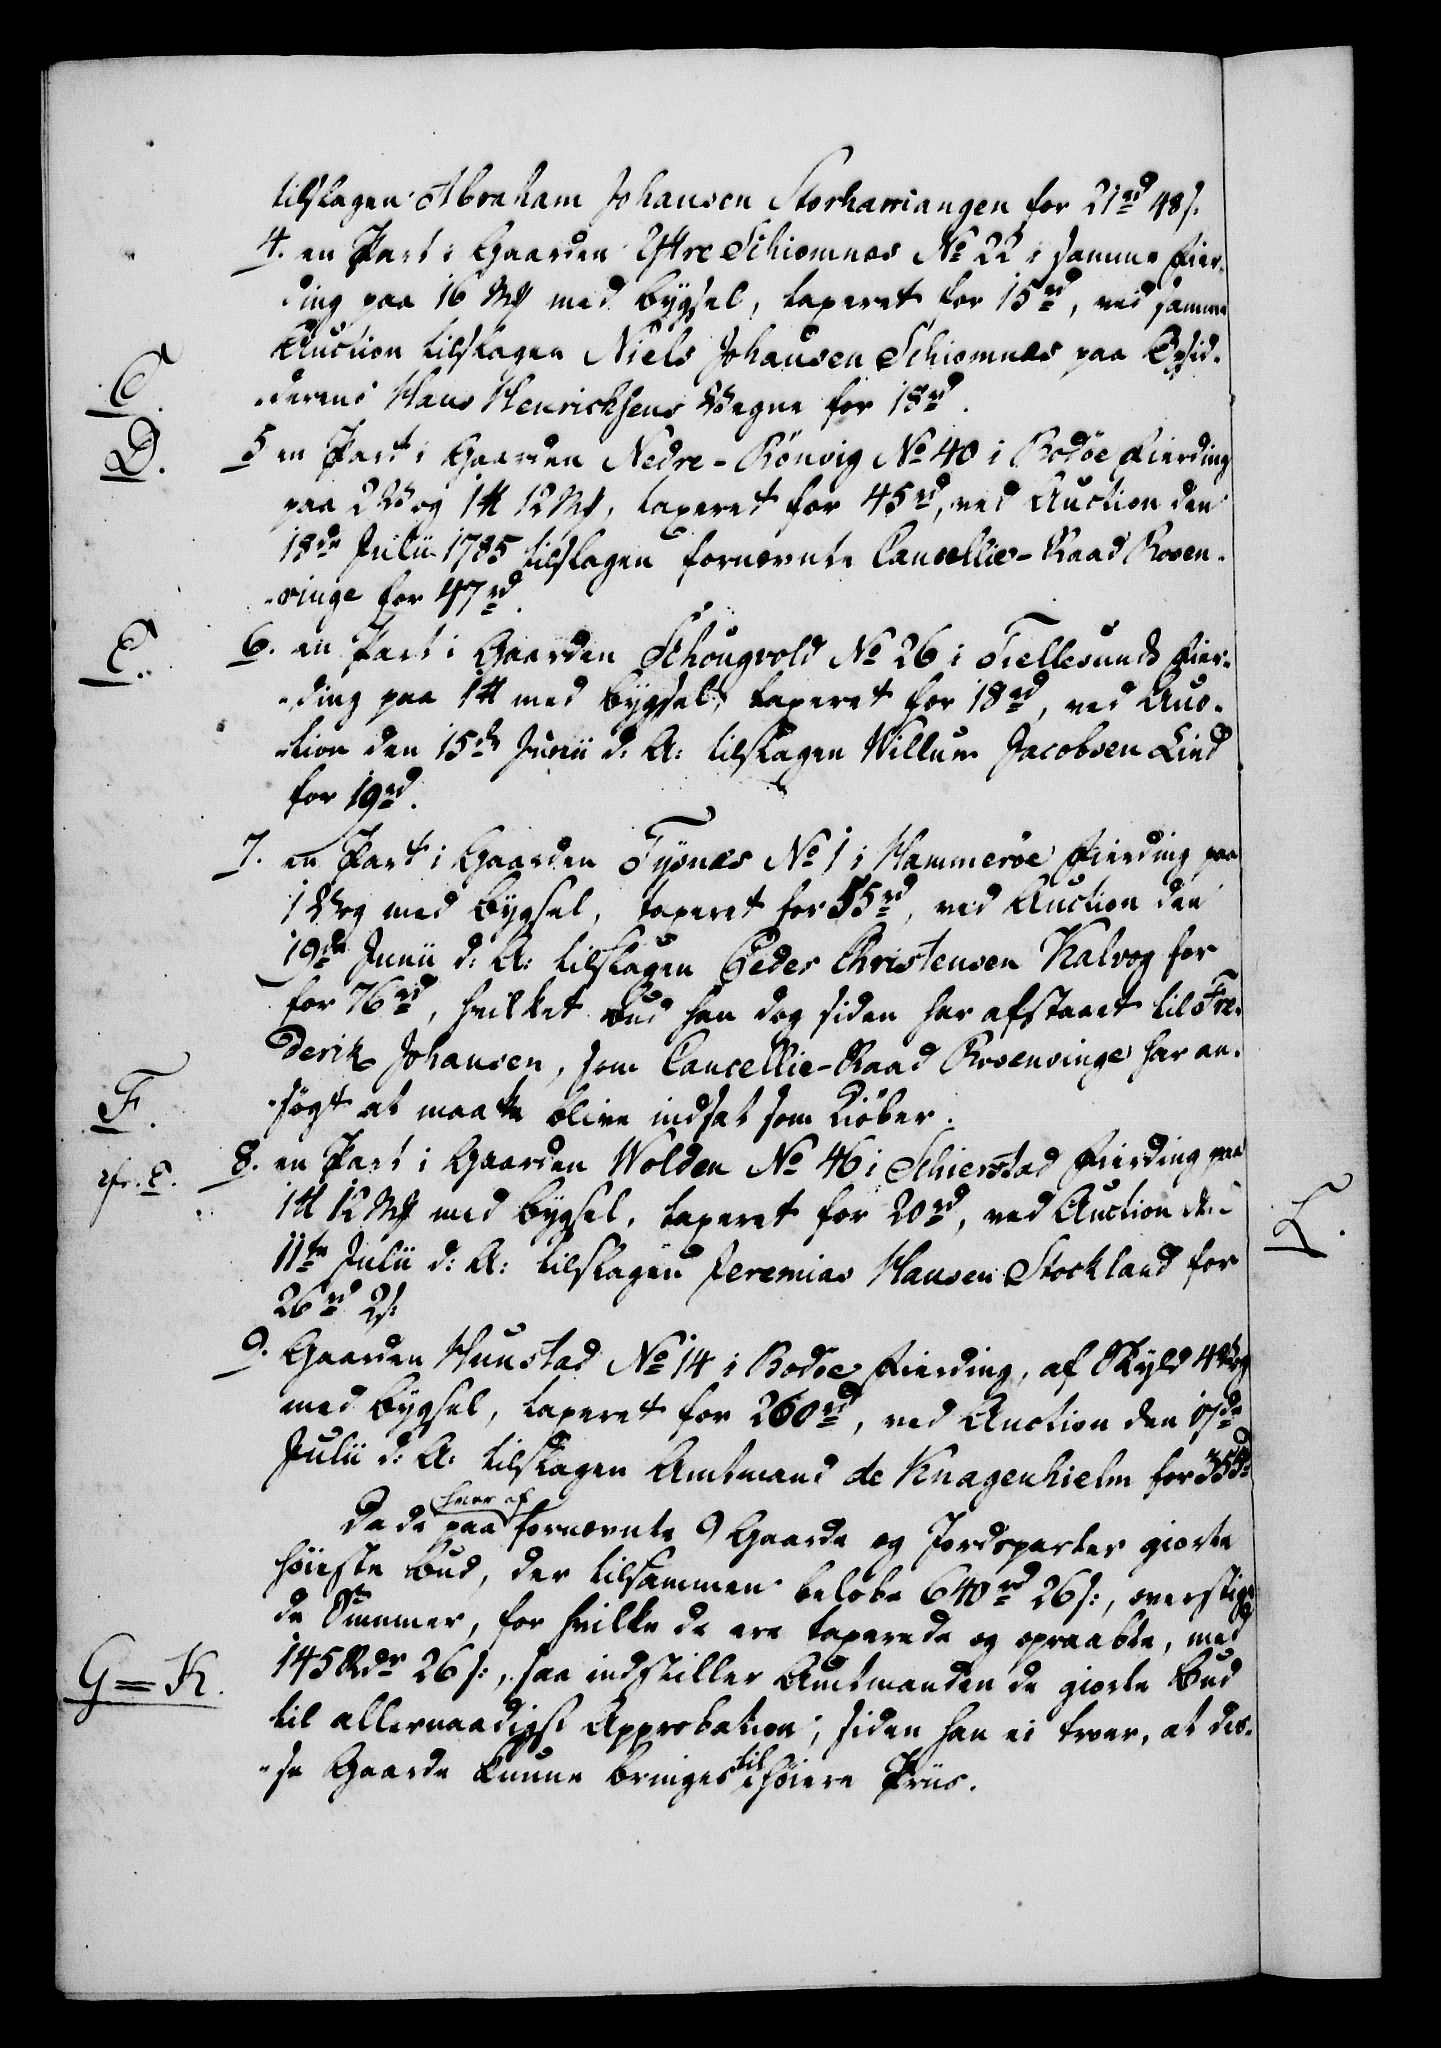 tilslagen Abraham Johansen Storhamangen for 21rd 48s.
4. en Part i Gaarden Yttre Schiomnes No 22 i samme Fier-
ding paa 16 Mk med Bygsel, taxeret for 15rd, ved samme
Auction tilslagen Niels Johansen Schiomnæs paa Opsid-
C.
derens Hans Henrichsens Vegne for 18rd.
D.
5 en Part i Gaarden Nedre-Rönvig No 40 i Bodöe Fierding
paa 2 Vog 1 tt 12 Mk, taxeret for 45rd, ved Auction den
18de Julii 1785 tilslagen fornevnte Cancellie-Raad Rosen-
vinge for 47rd.
E.
6. en Part i Gaarden Schougvold No 26 i Fiellesunds Fier-
ding paa 1 tt med Bygsel, taxeret for 18rd, ved Auc-
tion den 15de Junii d: A: tilslagen Willum Jacobsen Lind
for 19rd.
7. en Part i Gaarden Tysnæs No 1 i Hammeröe Fierding paa
1 Vog med Bygsel, taxeret for 55rd, ved Auction den
19de Junii d: A: tilslagen Peder Christensen Kalvog for
for 76rd, hvilket Bud han dog siden har afstaaet til Fre-
derik Johansen, som Cancellie-Raad Rosenvinge har an-
F.
søgt at maatte blive indsat som Kiöber.
cfr. E.
8. en Part i Gaarden Wolden No 46 i Schierstad Fierding paa
1 tt 12 Mk med Bygsel, taxeret for 20rd, ved Auction den
L.
11te Julii d: A: tilslagen Jeremias Hansen Stockland for
26rd 2s:
9. Gaarden Hunstad No 14 i Bodöe Fierding, af Skyld 4 Vog
med Bygsel, taxeret for 260rd, ved Auction den 17de
Julii d: A: tilslagen Amtmand de Knagenhielm for 355rd
hver af
Da de paa fornevnte 9 Gaarde og Jordsparter giorte
höieste Bud, der tilsammen belöbe 640rd 26s:, overstige
de Summer, for hvilke de ere taxerede og opraabte, med
G=K.
145 Rdr 26s:, saa indstiller Amtmanden de giorte Bud
til allernaadigst Approbation, siden han ei troer, at dis-
se Gaarde kunne bringes til höiere Priis.